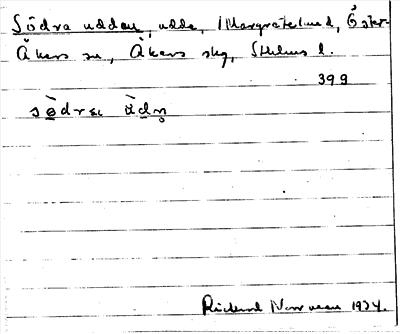 Södra udden, udde, Margretelund, Öster-
Åkers sn, Åkers skg, Sthlms l.
399
sø̀dra ùdn̥
Rickard 1934.